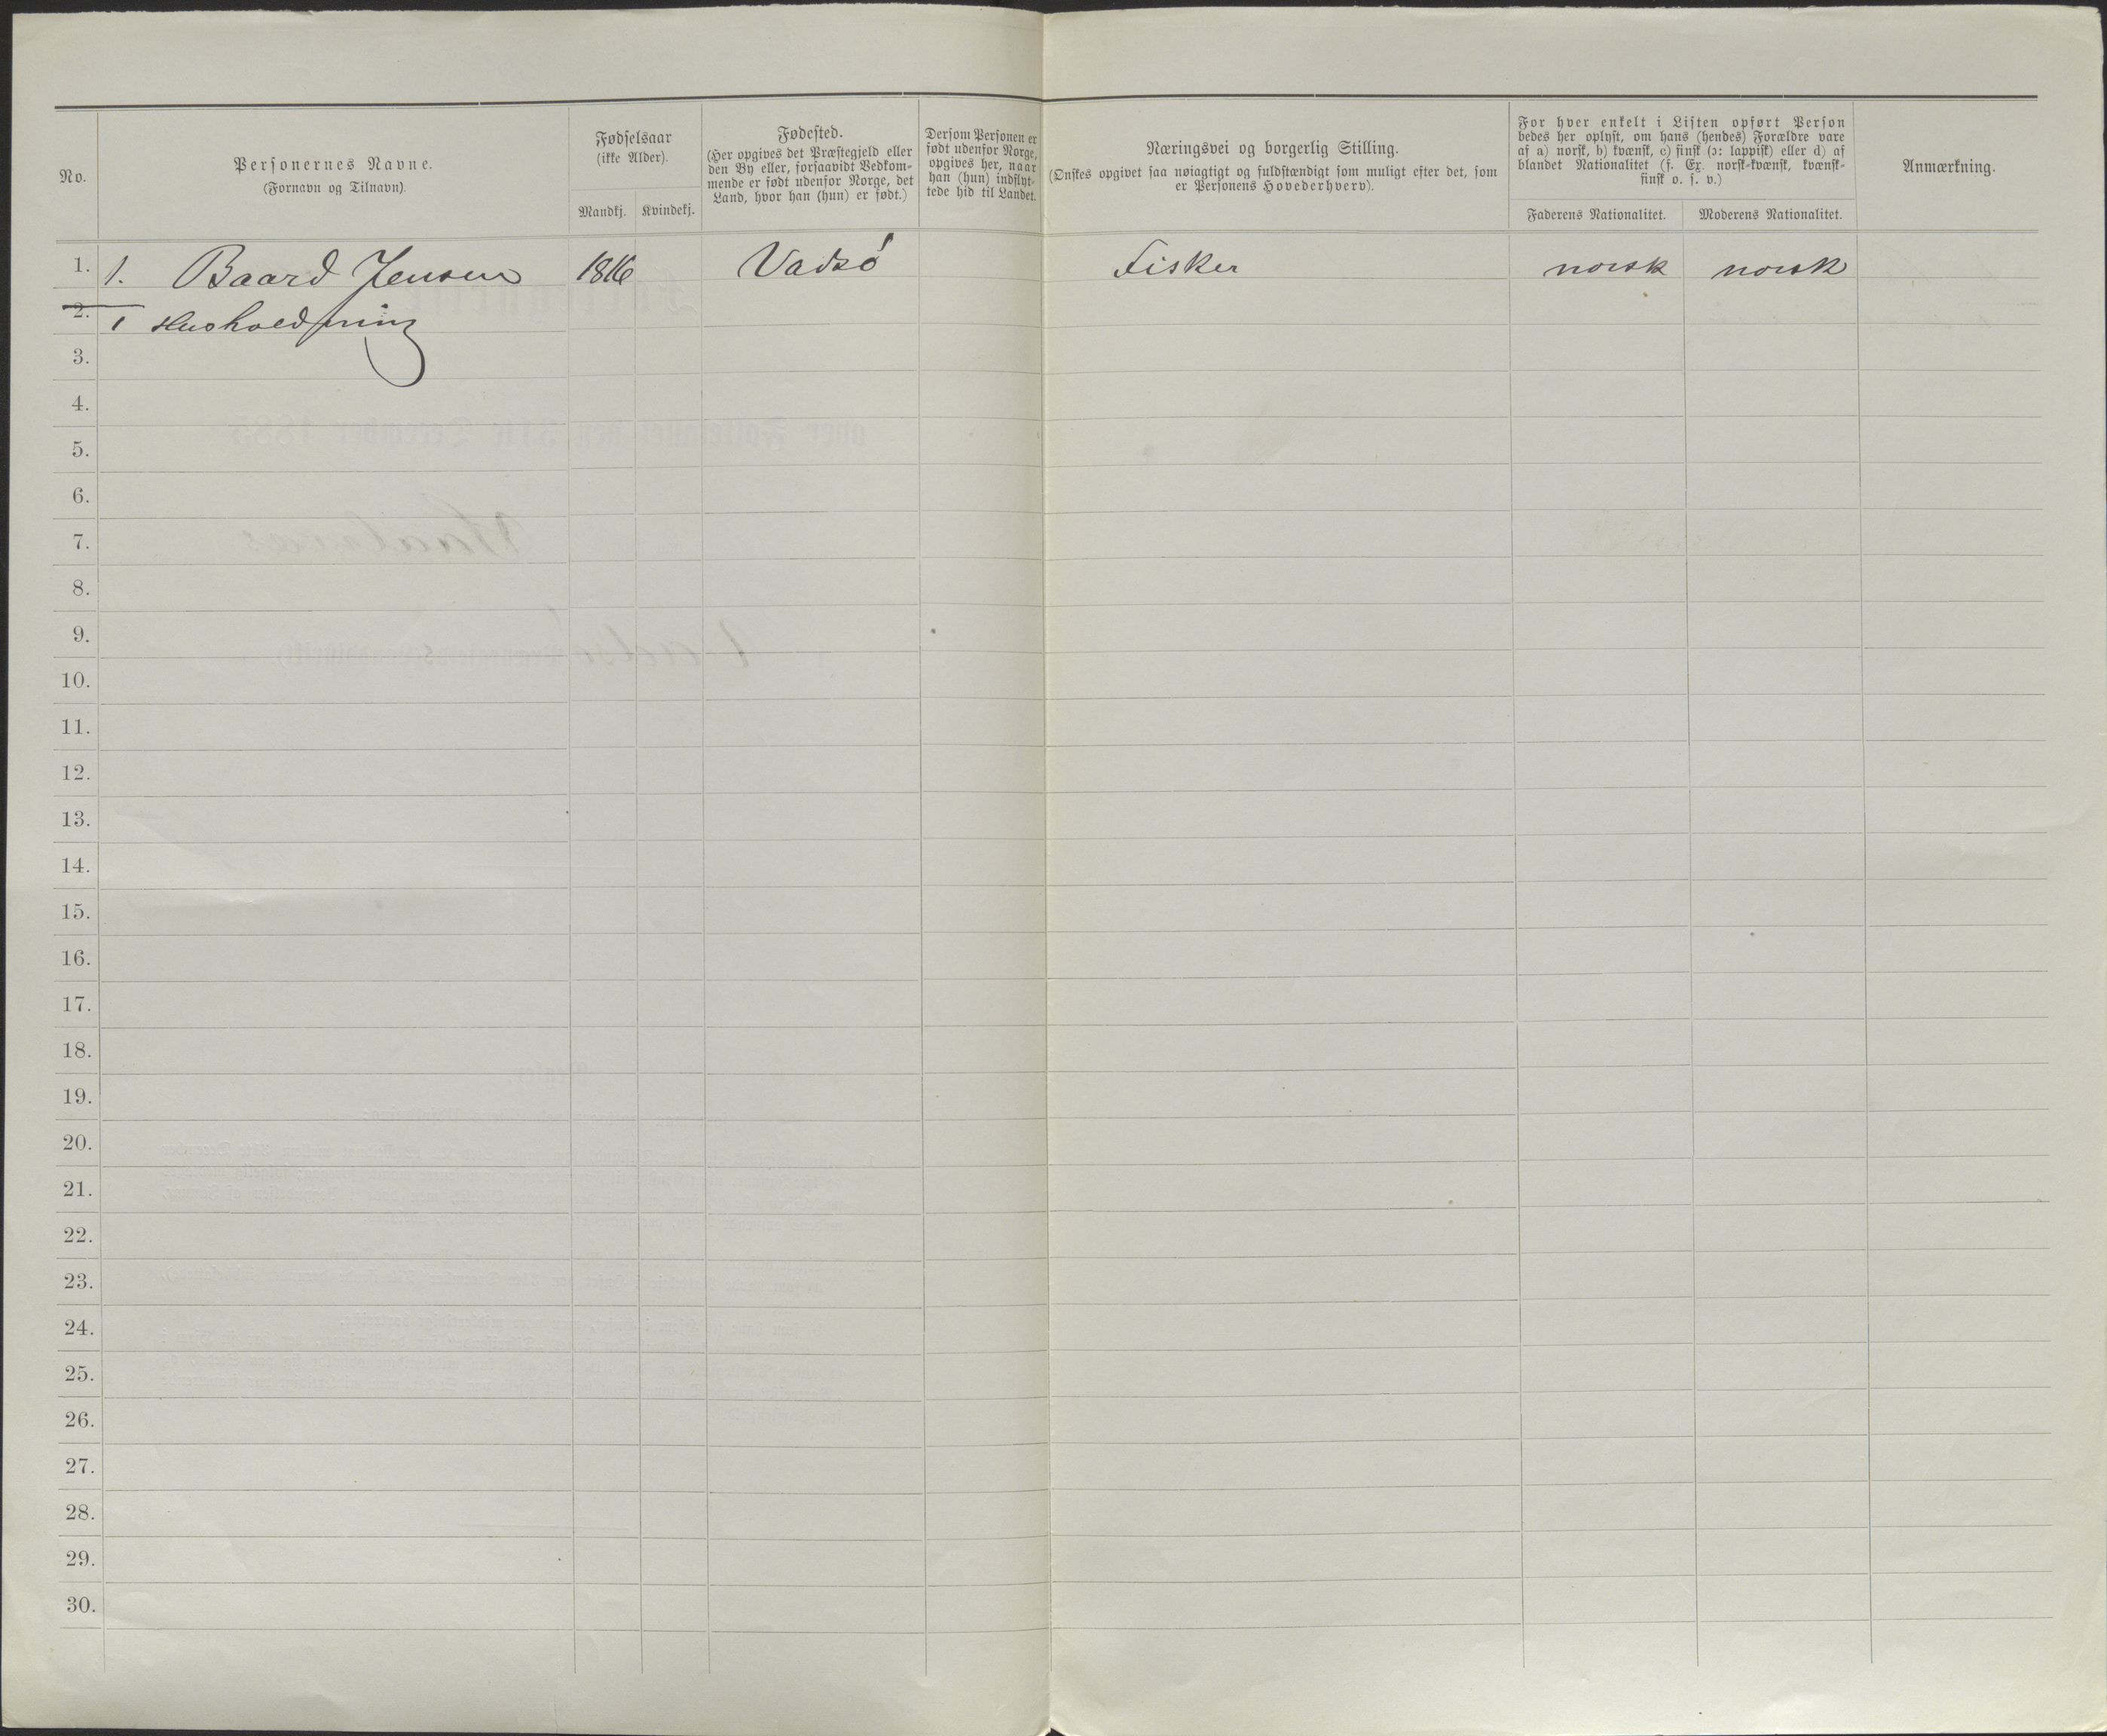 No.
Personernes Navne.
(Fornavn og Tilnavn).
Fødselsaar
(ikke Alder).
Mandkj.
Kvindekj.
Fødested.
(Her opgives det Præstegjeld eller
den By eller, forsaavidt Vedkom-
mende er født udenfor Norge, det
Land, hvor han (hun) er født.)
Dersom Personen er
født udenfor Norge,
opgives her, naar
han (hun) indflyt-
tede hid til Landet.
Næringsvei og borgerlig Stilling.
(Ønskes opgivet saa nøiagtigt og fuldstændigt som muligt efter det, som
er Personens Hovederhverv).
For hver enkelt i Listen opført Person
bedes her oplyst, om hans (hendes) Forældre vare
af a) norsk, b) kvænsk, c) finsk (ɔ: lappisk) eller d) af
blandet Nationalitet (f. Ex. norsk-kvænsk, kvænsk-
finsk o. s. v.)
Faderens Nationalitet.
Moderens Nationalitet.
Anmærkning.
1. 1. Baard Jensen 1816 Vadsø Fisker norsk norsk
2. 1 Husholdning
3.
4.
5.
6.
7.
8.
9.
10.
11.
12.
13.
14.
15.
16.
17.
18.
19.
20.
21.
22.
23.
24.
25.
26.
27.
28.
29.
30.